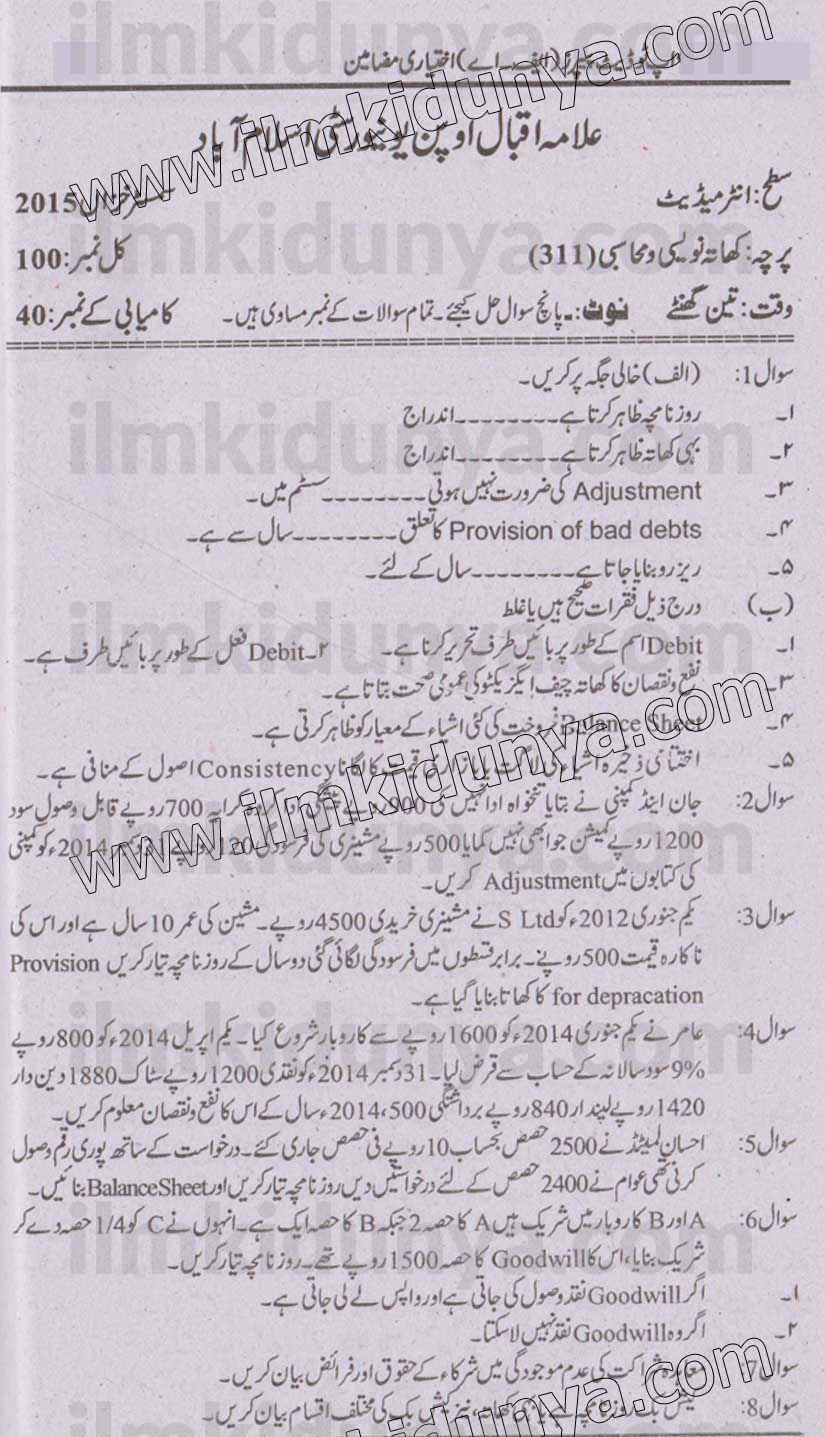 ilmkidunya.com
www.ilmkidunya.com
اپ ٹو ڈیٹ پیپرز (ایف۔اے) اختیاری مضامین
علامہ اقبال اوپن یونیورسٹی اسلام آباد
سطح: انٹرمیڈیٹ سمسٹر خزاں 2015
پرچہ: کھاتہ نویسی ومحاسبی (311) کل نمبر: 100
وقت: تین گھنٹے نوٹ:۔ پانچ سوال حل کیجئے۔ تمام سوالات کے نمبر مساوی ہیں۔ کامیابی کے نمبر: 40
سوال 1: (الف) خالی جگہ پر کریں۔
۱۔ روزنامچہ ظاہر کرتا ہے۔۔۔۔۔۔۔۔ اندراج
۲۔ بہی کھاتہ ظاہر کرتا ہے۔۔۔۔۔۔۔۔ اندراج
۳۔ Adjustment کی ضرورت نہیں ہوتی۔۔۔۔۔۔۔۔ سسٹم میں۔
۴۔ Provision of bad debts کا تعلق۔۔۔۔۔۔۔۔ سال سے ہے۔
۵۔ ریزرو بنایا جاتا ہے۔۔۔۔۔۔۔۔ سال کے لئے۔
(ب) درج ذیل فقرات صحیح ہیں یا غلط
۱۔ Debit اسم کے طور پر بائیں طرف تحریر کرنا ہے۔ ۲۔ Debit فعل کے طور پر بائیں طرف ہے۔
۳۔ نفع و نقصان کا کھاتہ چیف ایگزیکٹو کی عمومی صحت بتاتا ہے۔
۴۔ Balance Sheet فروخت کی گئی اشیاء کے معیار کو ظاہر کرتی ہے۔
۵۔ اختتامی ذخیرہ اشیاء کی لاگت یا بازاری قیمت کا لگانا Consistency اصول کے منافی ہے۔
سوال 2: جان اینڈ کمپنی نے بتایا تنخواہ ادا نہیں کی 900 روپے پیشگی ادا کردہ کرایہ 700 روپے قابل وصول سود
1200 روپے کمیشن جو ابھی نہیں کمایا 500 روپے مشینری کی فرسودگی 120 روپے 2014ء کو کمپنی
کی کتابوں میں Adjustment کریں۔
سوال 3: یکم جنوری 2012ء کو S Ltd نے مشینری خریدی 4500 روپے۔ مشین کی عمر 10 سال ہے اور اس کی
ناکارہ قیمت 500 روپے۔ برابر قسطوں میں فرسودگی لگائی گئی دو سال کے روزنامچہ تیار کریں Provision
for depracation کا کھاتا بنایا گیا ہے۔
سوال 4: عامر نے یکم جنوری 2014ء کو 1600 روپے سے کاروبار شروع کیا۔ یکم اپریل 2014ء کو 800 روپے
9% سود سالانہ کے حساب سے قرض لیا۔ 31 دسمبر 2014ء کو نقدی 1200 روپے سٹاک 1880 دین دار
1420 روپے لیندار 840 روپے برداشتگی 500، 2014ء سال کے اس کا نفع و نقصان معلوم کریں۔
سوال 5: احسان لمیٹڈ نے 2500 حصص بحساب 10 روپے فی حصص جاری کئے۔ درخواست کے ساتھ پوری رقم وصول
کرنی تھی عوام نے 2400 حصص کے لئے درخواستیں دیں روزنامچہ تیار کریں اور Balance Sheet بنائیں۔
سوال 6: A اور B کاروبار میں شریک ہیں A کا حصہ 2 جبکہ B کا حصہ ایک ہے۔ انہوں نے C کو 1/4 حصہ دے کر
شریک بنایا، اس کا Goodwill کا حصہ 1500 روپے تھے۔ روزنامچہ تیار کریں۔
۱۔ اگر Goodwill نقد وصول کی جاتی ہے اور واپس لے لی جاتی ہے۔
۲۔ اگر وہ Goodwill نقد نہیں لا سکتا۔
سوال 7: معاہدہ شراکت کی عدم موجودگی میں شرکاء کے حقوق اور فرائض بیان کریں۔
سوال 8: کیش بک روزنامچہ ہے یا بہی کھاتہ، نیز کیش بک کی مختلف اقسام بیان کریں۔